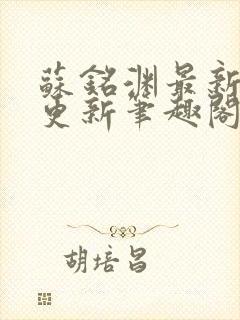 蘇銘渊最新
更新筆趣閣
胡培昌